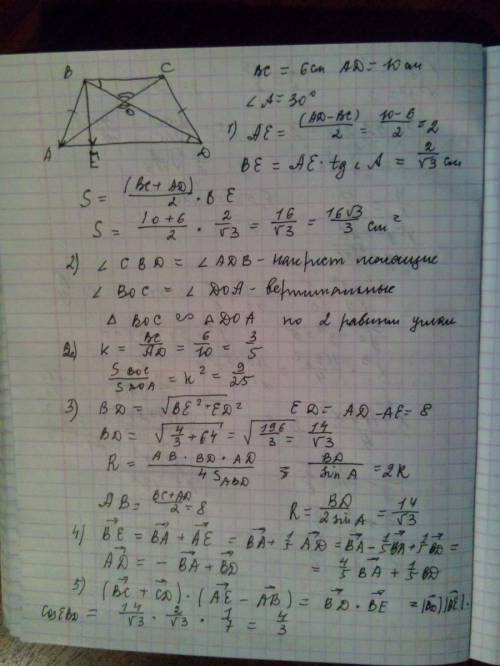 B C
A E D
O
BC = 6 см AD = 10 см
∠A = 30°
1) AE = (AD-BC)/2 = (10-6)/2 = 2
BE = AE · tg ∠A = 2/√3 см
S = (BC + AD)/2 · BE
S = (10+6)/2 · 2/√3 = 16/√3 = 16√3/3 см²
2) ∠CBD = ∠ADB - накрест лежащие
∠BOC = ∠DOA - вертикальные
△BOC ∞ ADOA по 2 равным углам
2.) k = BC/AD = 6/10 = 3/5
S BOC/S AOA = k² = 9/25
3) BD = √(BE² + ED²) ED = AD - AE = 8
BD = √(4/3 + 64) = √(196/3) = 14/√3
R = (AB · BD · AD)/(4S ABD) ; BD/sin A = 2R
AB = (BC+AD)/2 = 8 R = BD/(2 sin A) = 14/√3
4) BE⃗ = BA⃗ + AE⃗ = BA⃗ + 1/5 AD⃗ = BA⃗ - 1/5 BA⃗ + 1/5 BD⃗ =
AD⃗ = - BA⃗ + BD⃗ = 4/5 BA⃗ + 1/5 BD⃗
5) (BC⃗ + CD⃗) · (AE⃗ - AB⃗) = BD⃗ · BE⃗ = |BD⃗| |BE⃗| ·
cos EBD = 14/√3 · 2/√3 · 1/7 = 4/3